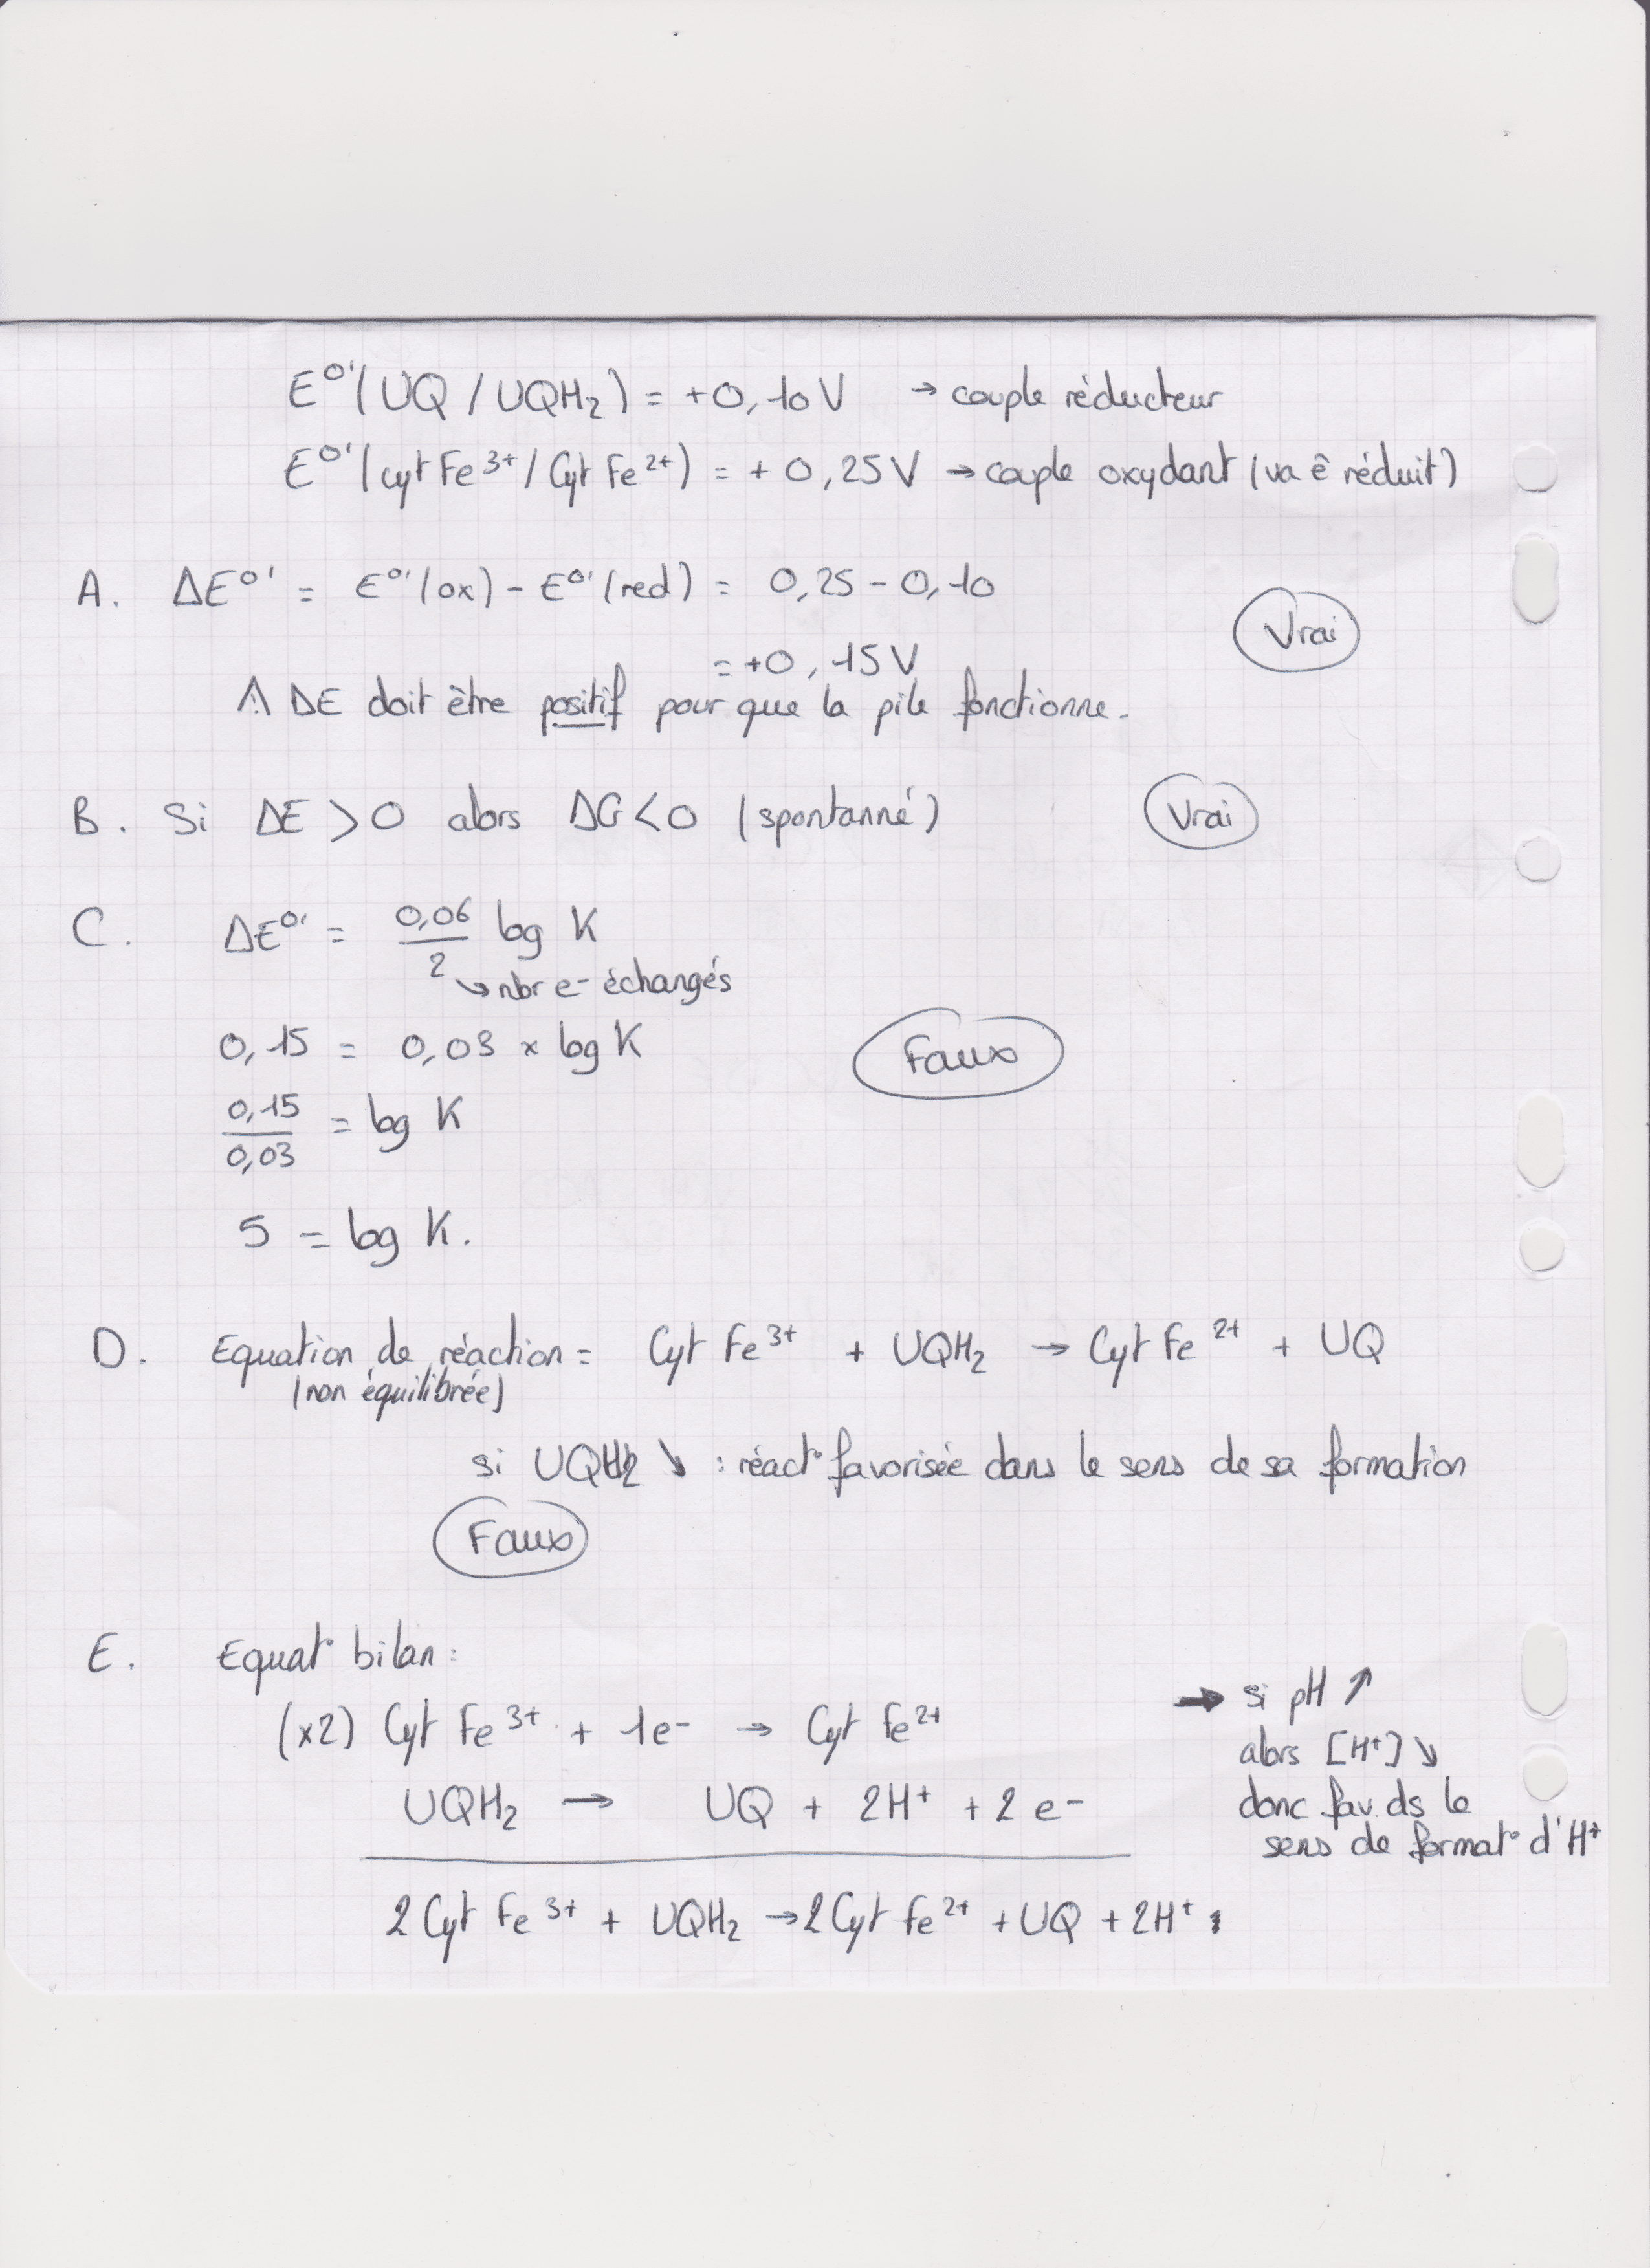 E°'(UQ / UQH₂) = +0,10V → couple réducteur
E°'(cyt Fe³⁺ / Cyt Fe²⁺) = + 0,25V → couple oxydant (va ê réduit)
A. ΔE°' = E°'(ox) - E°'(red) = 0,25 - 0,10
= +0,15V
Vrai
⚠ ΔE doit être positif pour que la pile fonctionne.
B. Si ΔE > 0 alors ΔG < 0 (spontanné) Vrai
C. ΔE°' = 0,06/2 log K
↘ nbr e⁻ échangés
0,15 = 0,03 × log K Faux
0,15/0,03 = log K
5 = log K.
D. Equation de réaction = Cyt Fe³⁺ + UQH₂ → Cyt Fe²⁺ + UQ
(non équilibrée)
si UQH2 ↘ : réact° favorisée dans le sens de sa formation
Faux
E. Equat° bilan :
(x2) Cyt Fe³⁺ + 1e⁻ → Cyt Fe²⁺
UQH₂ → UQ + 2H⁺ + 2e⁻
2 Cyt Fe³⁺ + UQH₂ → 2 Cyt Fe²⁺ + UQ + 2H⁺
→ si pH ↗
alors [H⁺] ↘
donc fav. ds le
sens de format° d'H⁺